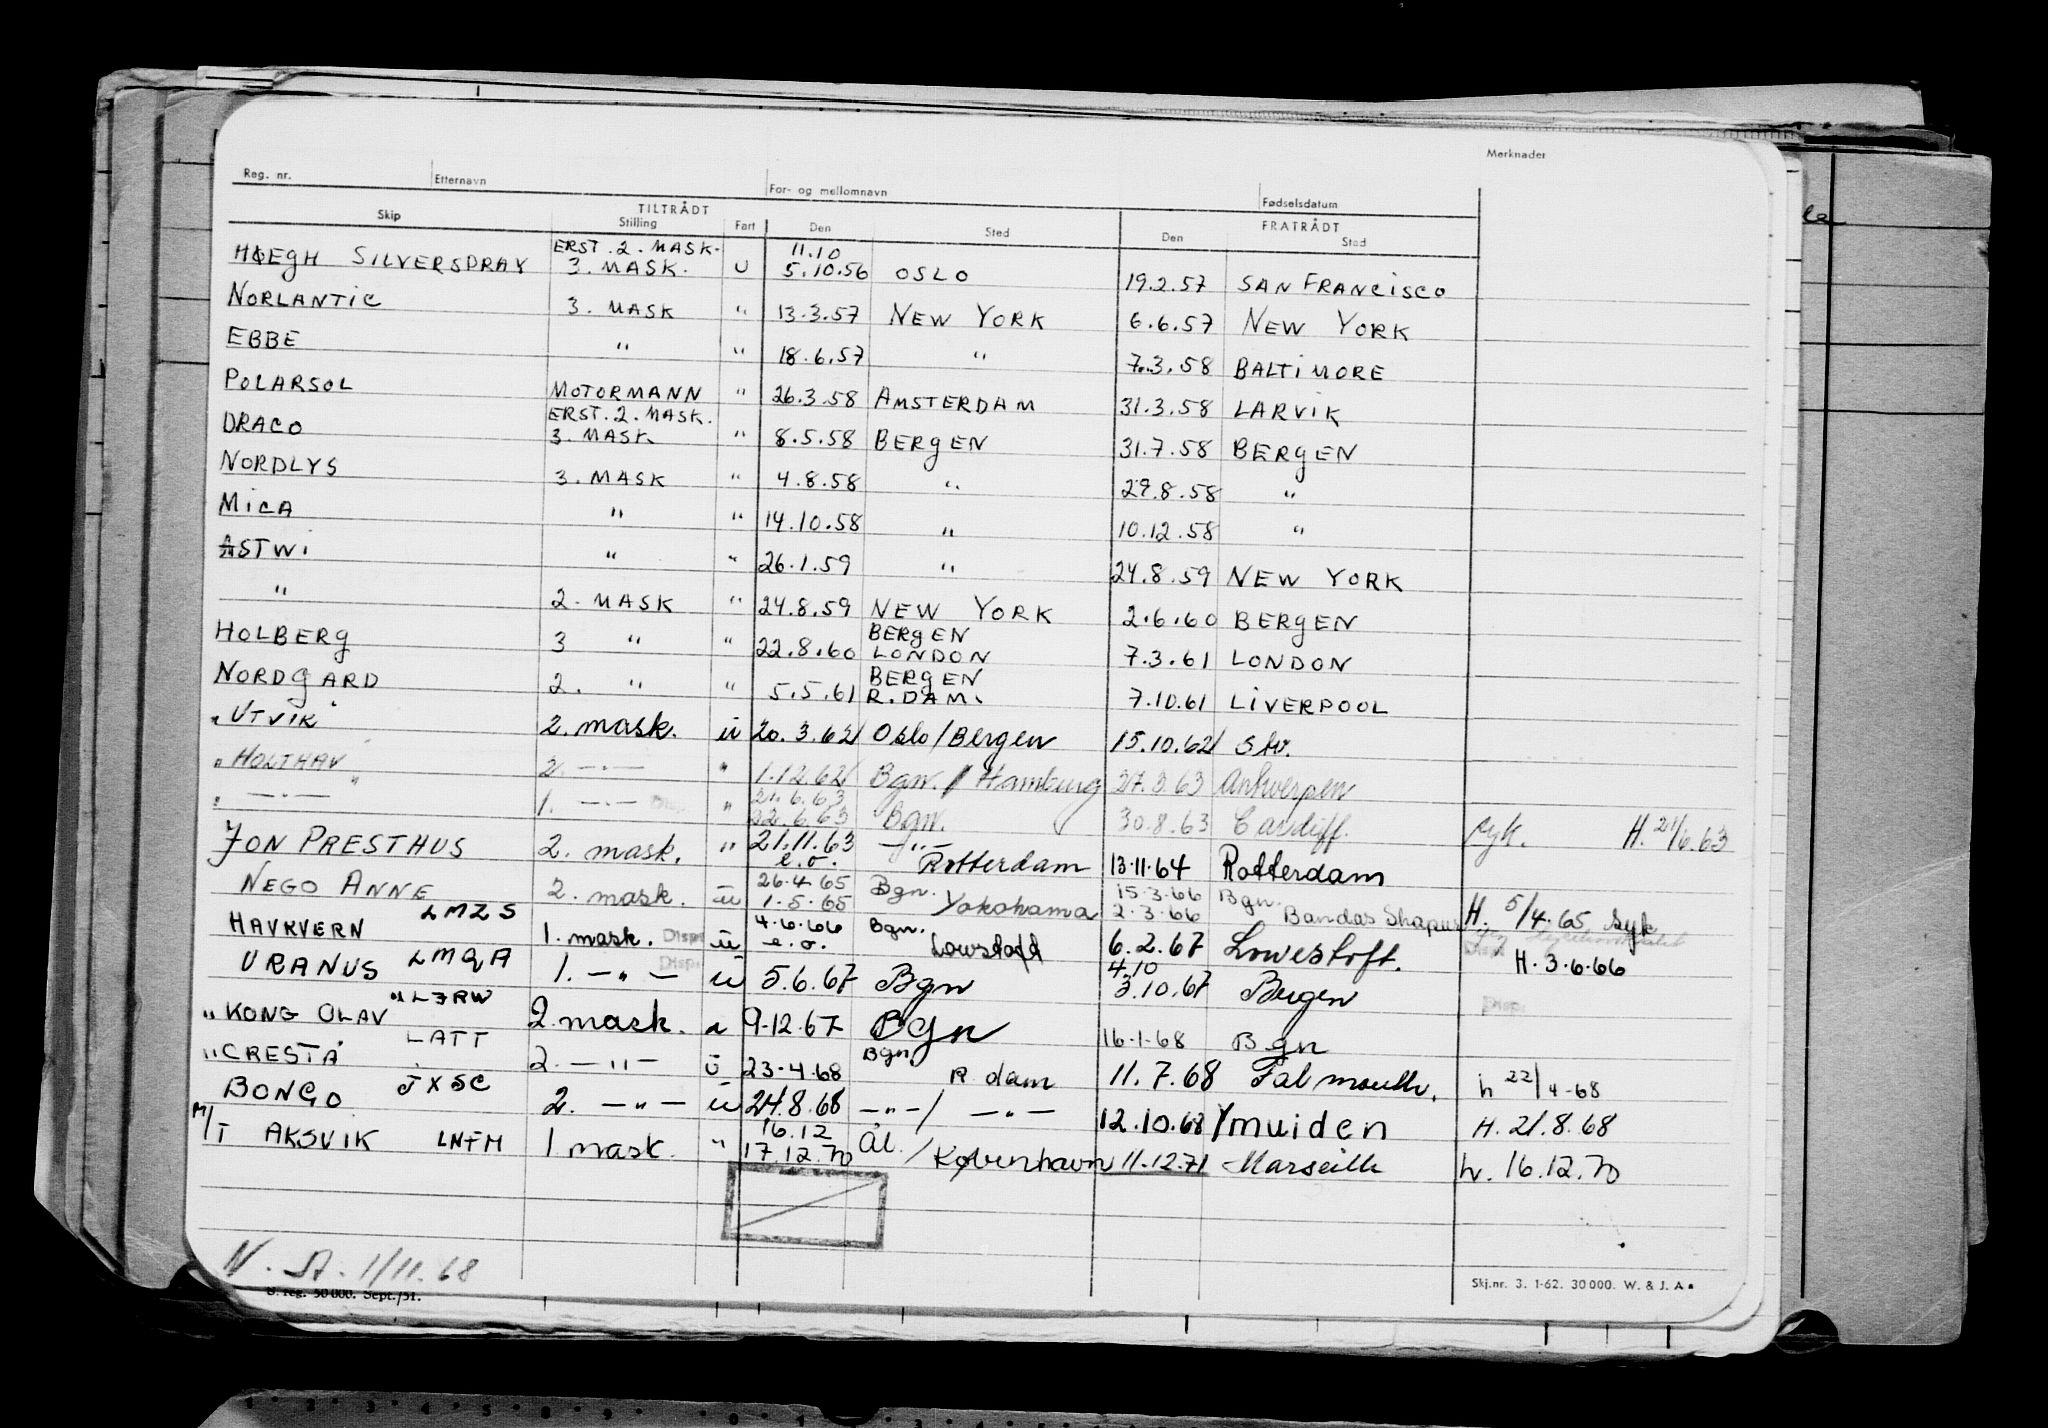 Merknader
Reg. nr. Etternavn For- og mellomnavn Fødselsdatum
TILTRÅDT FRATRÅDT
Skip Stilling Fart Den Sted Den Sted
ERST. 2. MASK. 11.10
HØEGH SILVERSPRAY 3. MASK. U 5.10.56 OSLO 19.2.57 SAN FRANCISCO
NORLANTIC 3. MASK " 13.3.57 NEW YORK 6.6.57 NEW YORK
EBBE " " 18.6.57 " 7.3.58 BALTIMORE
POLARSOL MOTORMANN " 26.3.58 AMSTERDAM 31.3.58 LARVIK
ERST. 2. MASK.
DRACO 3. MASK " 8.5.58 BERGEN 31.7.58 BERGEN
NORDLYS 3. MASK " 4.8.58 " 29.8.58 "
MICA " " 14.10.58 " 10.12.58 "
ASTWI " " 26.1.59 " 24.8.59 NEW YORK
" 2. MASK " 24.8.59 NEW YORK 2.6.60 BERGEN
BERGEN
HOLBERG 3 " " 22.8.60 LONDON 7.3.61 LONDON
BERGEN
NORDGARD 2. " " 5.5.61 R.DAM. 7.10.61 LIVERPOOL
"UTVIK" 2. mask. ü 20.3.62 Oslo/Bergen 15.10.62 Stv.
"HOLTHAV" 2. -"- " 1.12.62 Bgn. / Hamburg 27.3.63 Antwerpen
21.6.63
" -"- " 1. -"- Disp " 22.6.63 Bgn. 30.8.63 Cardiff. syk. H. 21/6.63
JON PRESTHUS 2. mask. " 21.11.63 -"-
e.o. Rotterdam 13.11.64 Rotterdam
26.4.65 Bgn. 15.3.66 Bgn.
NEGO ANNE 2. mask. ü 1.5.65 Yokohama 2.3.66 Bandas Shapur H. 5/4.65 Syk
HAVKVERN LMZS 1. mask. Disp ü 4.6.66 Bgn.
e.o. Lowestoft 6.2.67 Lowestoft. H. 3.6.66
4.10
URANUS LMQA 1. -"- Disp. ü 5.6.67 Bgn 3.10.67 Bergen Disp.
"KONG OLAV" LJRW 2. mask. a 9.12.67 Bgn 16.1.68 Bgn
"CRESTA" LATT 2. -"- ü 23.4.68 Bgn. R.dam 11.7.68 Falmouth. h 22/4-68
BONGO JXSC 2. -"- ü 24.8.68 -"-/ -"- 12.10.68 Ymuiden H. 21.8.68
16.12
M/T AKSVIK LNFM 1 mask. " 17.12.70 Ål. / København 11.12.71 Marseille h. 16.12.70
N. A. 1/11.68
S. reg. 50 000. Sept./51.
Skj.nr. 3. 1-62. 30 000. W. & J. A.
1 2 3 4 5 6 7 8 9